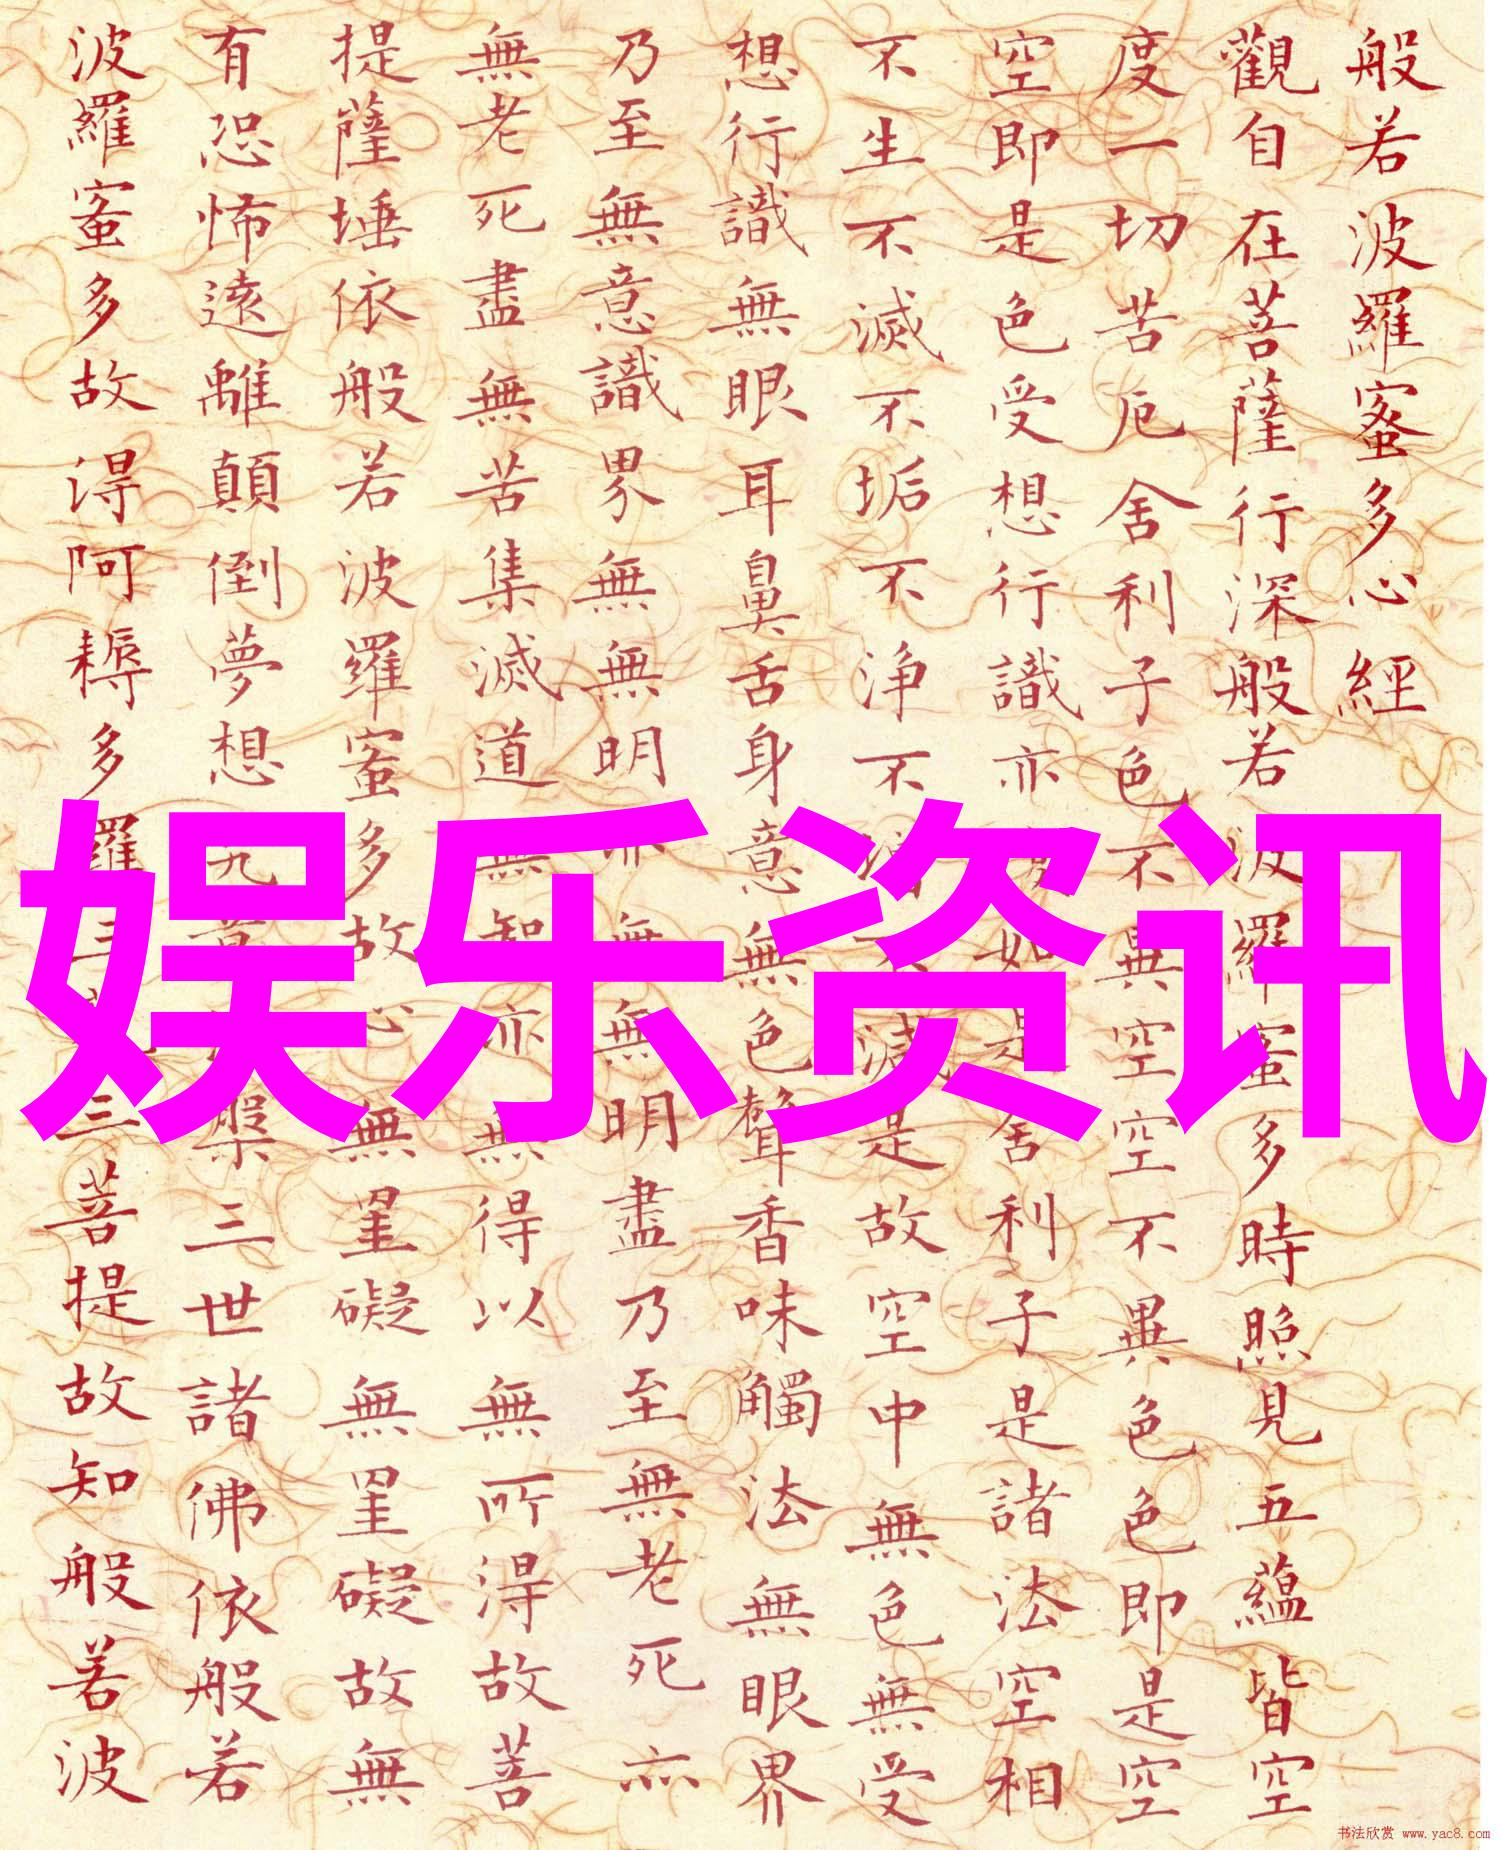 般若波羅蜜多心經
觀自在菩薩行深般若波羅蜜多時照見五蘊皆空
度一切苦厄舍利子色不異空空不異色色即是空
空即是色受想行識亦如是舍利子是諸法空相
不生不滅不垢不浄不增不減是故空中無色無受
想行識無眼耳鼻舌身意無色聲香味觸法無眼界
乃至無意識界無無明亦無無明盡乃至無老死亦
無老死盡無苦集滅道無知亦無得以無所得故菩
提薩埵依般若波羅蜜多故心無罣礙無罣礙故無
有恐怖遠離顛倒夢想究槃三世諸佛依般若
波羅蜜多故得阿耨多羅三三菩提故知般若波
娱乐资讯
书法欣赏 www.yac8.com